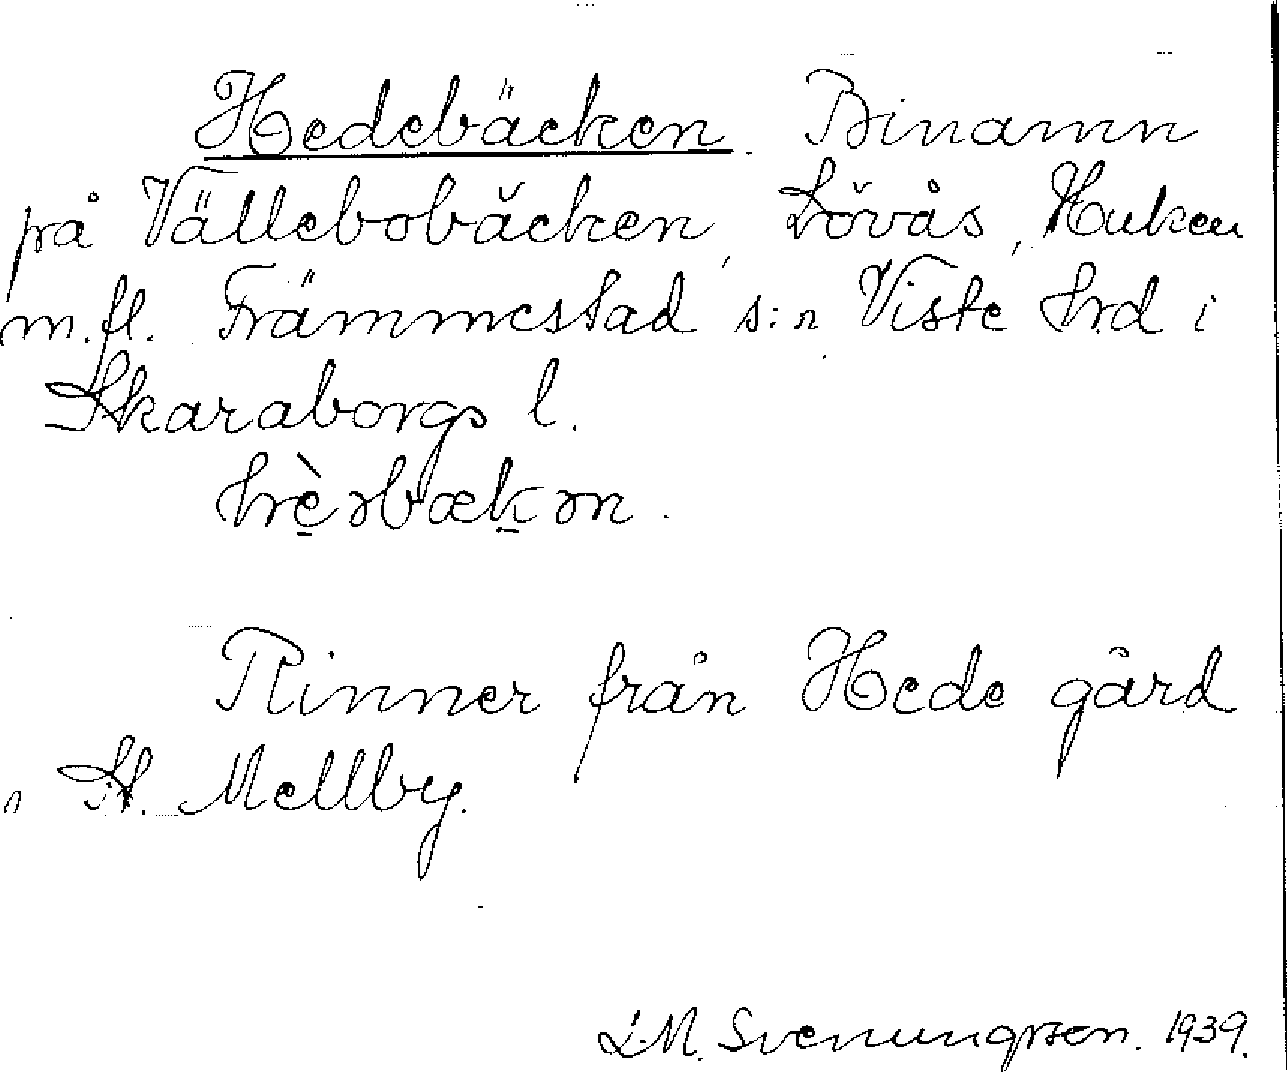 Hedebäcken. Binamn
på Vällebobäcken, Lövås, Huken
m.fl. Främmestad s:n Viste hrd i
Skaraborgs l.
hèəbækən.
Rinner från Hede gård
i St. Mellby.
L.M. Svenungsson. 1939.